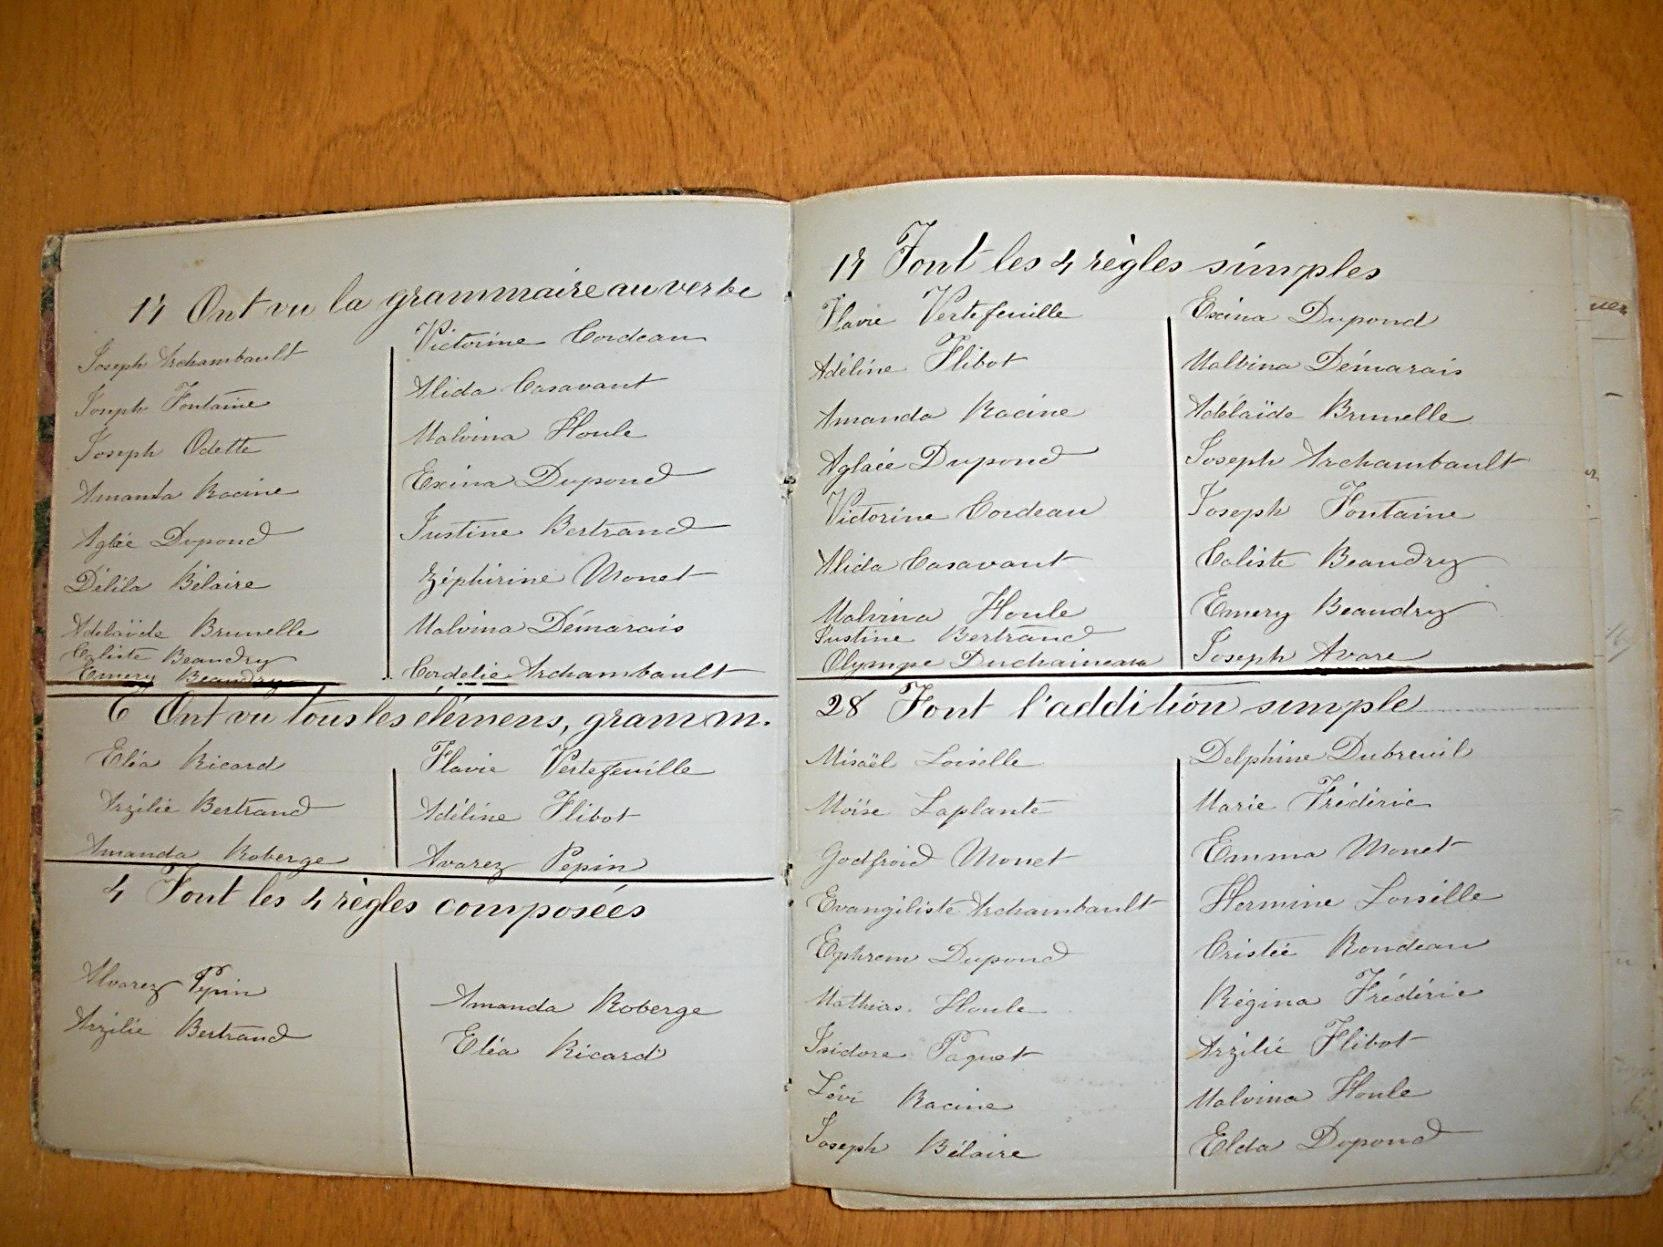 17 Ont vu la grammaire au verbe
Joseph Archambault
Joseph Fontaine
Joseph Odette
Amanda Racine
Aglaée Dupond
Délila Bélaire
Adélaïde Brunelle
Caliste Beaudry
Emery Beaudry
Victorine Cordeau
Alida Casavant
Malvina Houle
Exina Dupond
Justine Bertrand
Zéphirine Monet
Malvina Démarais
Cordélie Archambault
6 Ont vu tous les élémens, gramm.
Eléa Ricard
Arzilie Bertrand
Amanda Roberge
Flavie Vertefeuille
Adéline Flibot
Avarez Pepin
4 Font les 4 règles composées
Alvarez Pepin
Arzilie Bertrand
Amanda Roberge
Eléa Ricard
17 Font les 4 règles simples
Flavie Vertefeuille
Adéline Flibot
Amanda Racine
Aglaée Dupond
Victorine Cordeau
Alida Casavant
Malvina Houle
Justine Bertrand
Olympe Duchaineau
Exina Dupond
Malvina Démarais
Adélaïde Brunelle
Joseph Archambault
Joseph Fontaine
Caliste Beaudry
Emery Beaudry
Joseph Avare
28 Font l'addition simple
Misaël Loiselle
Moïse Laplante
Godfroid Monet
Evangéliste Archambault
Ephrem Dupond
Mathias Houle
Isidore Paquet
Lévi Racine
Joseph Bélaire
Delphine Dubreuil
Marie Frédéric
Emma Monet
Hermine Loiselle
Cristée Rondeau
Régina Frédéric
Arzilie Flibot
Malvina Houle
Elda Dupond